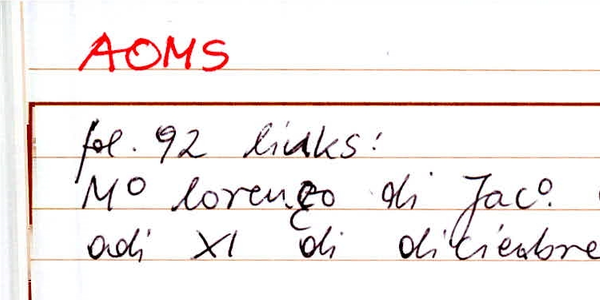 AOMS
fol. 92 links:
Mº lorenço di Jacº.
adi XI di diciembre